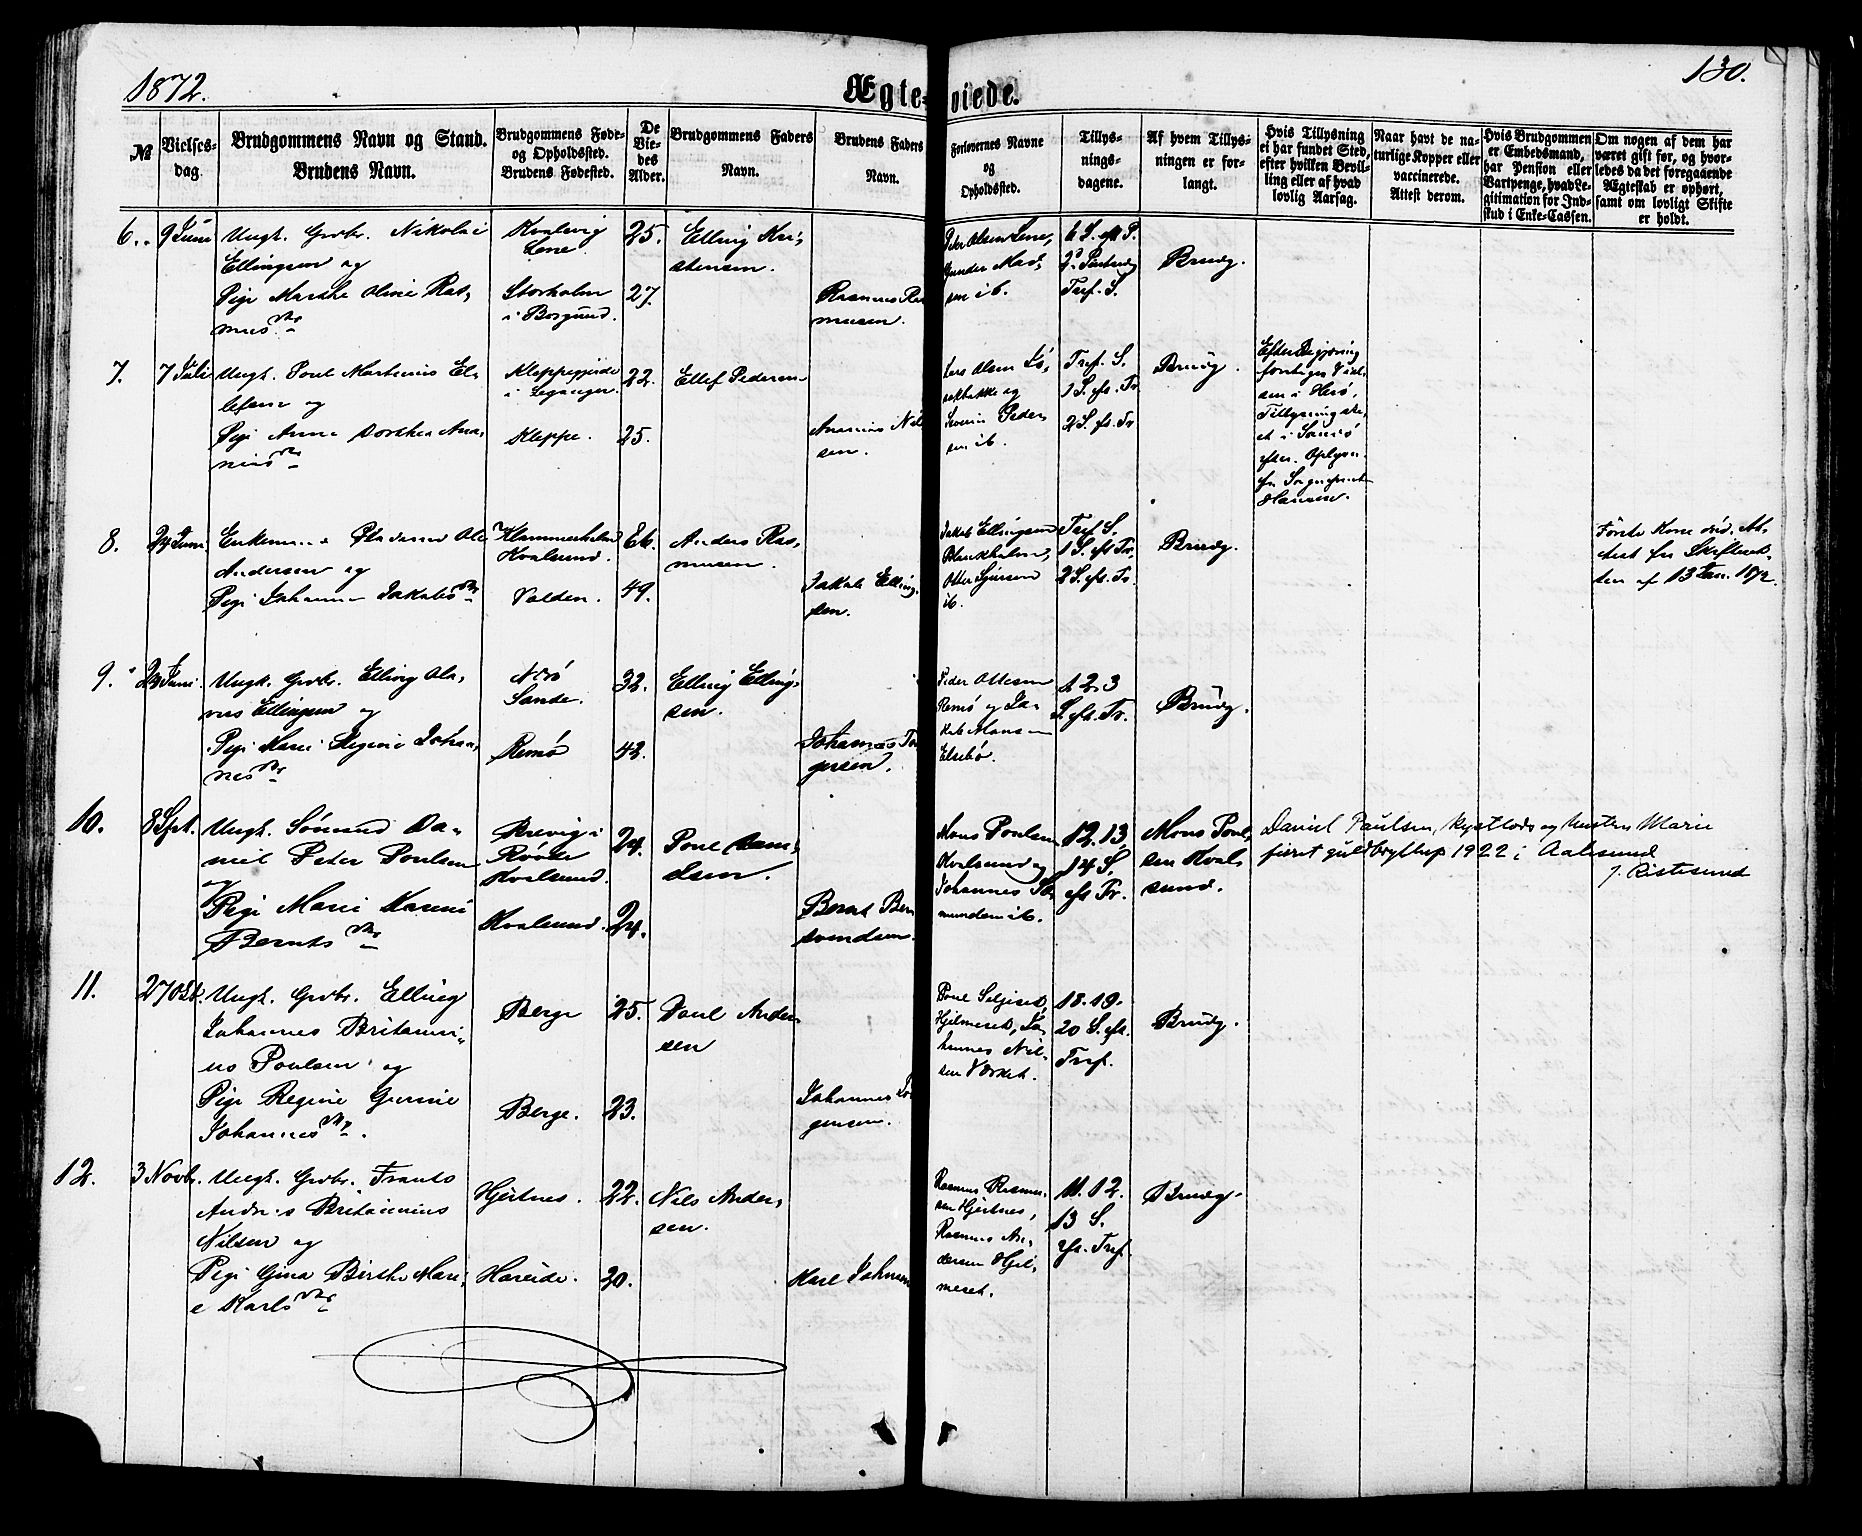 1872.
Ægte-viede.
130.
№
Vielses-
dag.
Brudgommens Navn og Stand.
Brudens Navn.
Brudgommens Føde-
og Opholdssted.
Brudens Fødested.
De
Vie-
des
Alder.
Brudgommens Faders
Navn.
Brudens Faders
Navn.
Forlovernes Navne
og
Opholdssted.
Tillys-
nings-
dagene.
Af hvem Tillys-
ningen er for-
langt.
Hvis Tillysning
ei har fundet Sted,
efter hvilken Bevil-
ling eller af hvad
lovlig Aarsag.
Naar havt de na-
turlige Kopper eller
vaccinerede.
Attest derom.
Hvis Brudgommen
er Embedsmand,
har Pension eller
Vartpenge, hvad Le-
gitimation for Ind-
skud i Enke-Cassen.
Om nogen af dem har
været gift før, og hvor-
ledes da det foregaaende
Ægteskab er ophørt,
samt om lovligt Skifte
er holdt.
6.
9 Juni
Ungk. Grdbr. Nikolai
Ellingsen og
Pige Marthe Oline Ras-
mus Dtr
Kvalsvig
Lene.
Storholm
i Borgund.
25.
27.
Elling Kri-
stensen.
Rasmus Ras
musen.
Peder Olsen Lene,
Gunder Mad-
sen ib.
6 S. eft P.
2 Pintsedg
Tref. S.
Brudg.
7.
7 Juli
Ungk. Poul Martinus El-
lefsen og
Pige Anne Dorthea Ana-
nias Dtr
Kleppegjerde
i Leganger.
Kleppe.
22.
25.
Ellef Pedersen
Ananias Nil
sen.
Lars Olsen
og
Severin Peder-
sen ib.
Tref. S.
1 S. ef. Tr
2 S. ef. Tr
Brudg.
Efter Begjæring
foretages Viel-
sen i Herø,
Tillysning ske-
et i Sandø
efter Oplysn.
fra Sognepræst
Hansen.
8.
24 Juni
Enkemand Ole
Andersen og
Pige Johanne Jakobs Dtr
Klammerholm
Kvalsund.
Volden.
66.
49.
Anders Ras-
musen.
Jakob Elling-
sen.
Jakob Ellingsen
Blankholm,
Otter Sjursen
ib.
Tref S.
1 S. ef Tr.
2 S. ef. Tr.
Brudg.
Første Kone død. At-
test fra Skifteret-
ten af 13 Jan. 1872.
9.
23 Juni.
Ungk. Grdbr. Elling Ola-
vus Ellingsen og
Pige Marie Regine Johan-
nes Dtr
Nærø
Sande.
Remø
32.
42.
Elling Elling-
sen.
Johannes Tor
gersen.
Peder Ottesen
Remø og Ja-
kob Monsen
Elsebø.
1. 2. 3
S. ef. Tr.
Brudg.
10.
8 Sept.
Ungk. Sømand Da-
niel Peter Poulsen
og
Pige Marie Karine
Bernts Dtr
Brevig i
Røvde
Kvalsund.
Kvalsund.
24.
24.
Poul Sam-
Bernt Ber
svendsen.
Mons Poulsen
Kvalsund og
Johannes Sø-
mundsen ib.
12. 13.
14 S.
ef Tr.
Mons Poul-
sen Kval-
sund.
Daniel Paulsen, kystlods og hustru Marie
feiret guldbryllup 1922 i Aalesund
J. Ristesund
11.
27 Okt.
Ungk. Grdbr. Elling
Johannes Britanni-
us Poulsen og
Pige Regine Gurine
Johannes Dtr.
Berge
Berge.
25.
23.
Poul Ander-
sen
Johannes Tor
gersen.
Poul
Hjelmeset, Jo-
hannes Nil-
sen
18. 19.
20 S. ef.
Tref.
Brudg.
12.
3 Novbr.
Ungk. Grdbr. Frants
Andreas Britannius
Nilsen og
Pige Gina Birthe Mari-
e Karls Dtr
Hjertnes.
Hareide.
22.
20.
Nils Ander-
sen.
Karl Johnsen
Rasmus Rasmus-
sen Hjertnes,
Rasmus An-
dersen Hjel-
meset.
11. 12.
13 S.
ef. Tref.
Brudg.